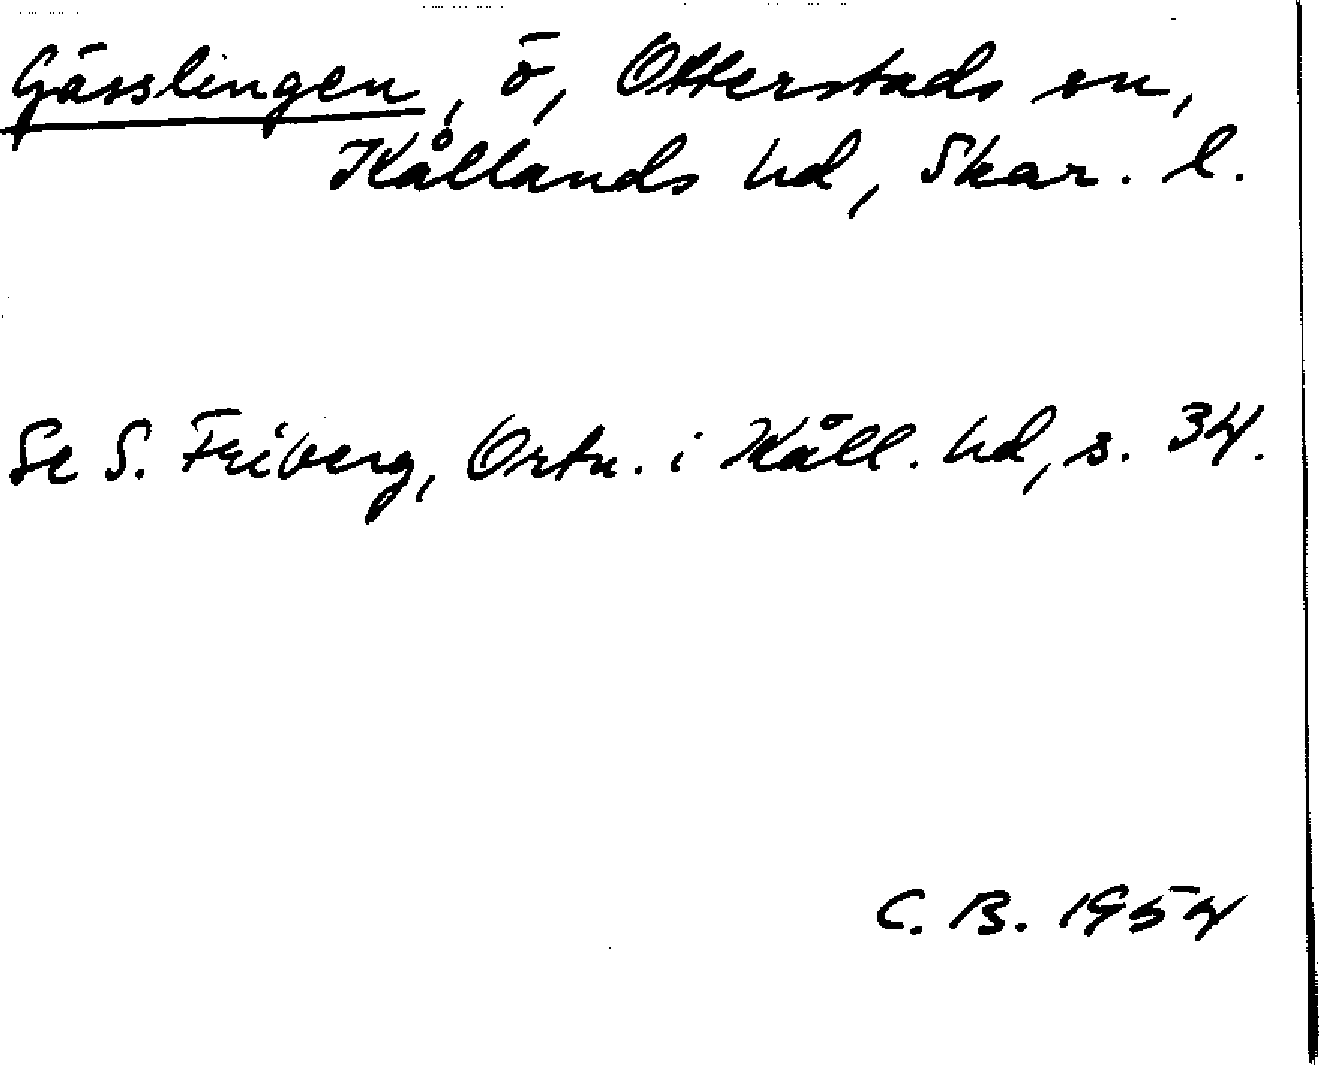 Gässlingen, ö, Otterstads sn,
Kållands hd, Skar. l.
Se S. Friberg, Ortn. i Kåll. hd, s. 34.
C. B. 1954